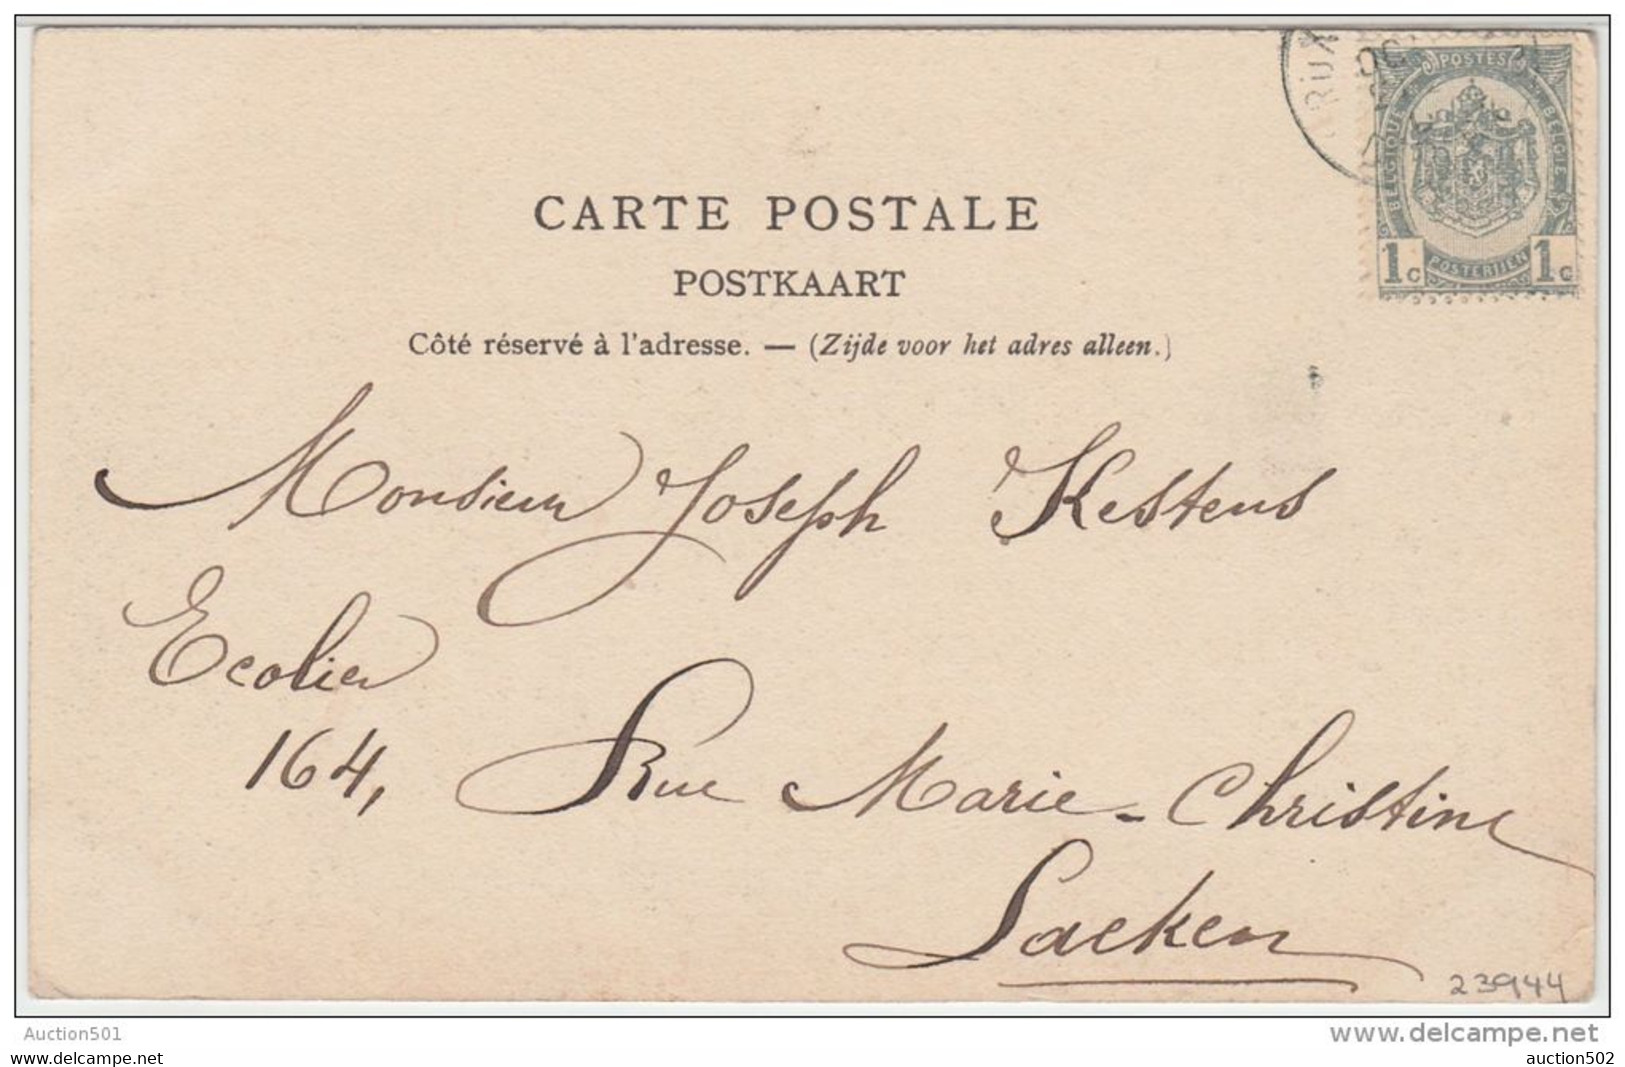 POSTES
BELGIQUE
BELGIË
1c POSTERIJEN 1c
CARTE POSTALE
POSTKAART
Côté réservé à l'adresse. — (Zijde voor het adres alleen.)
Monsieur Joseph Kestens
Ecolier
164, Rue Marie-Christine
Laeken
23944
Auction501
delcampe.net
auction502